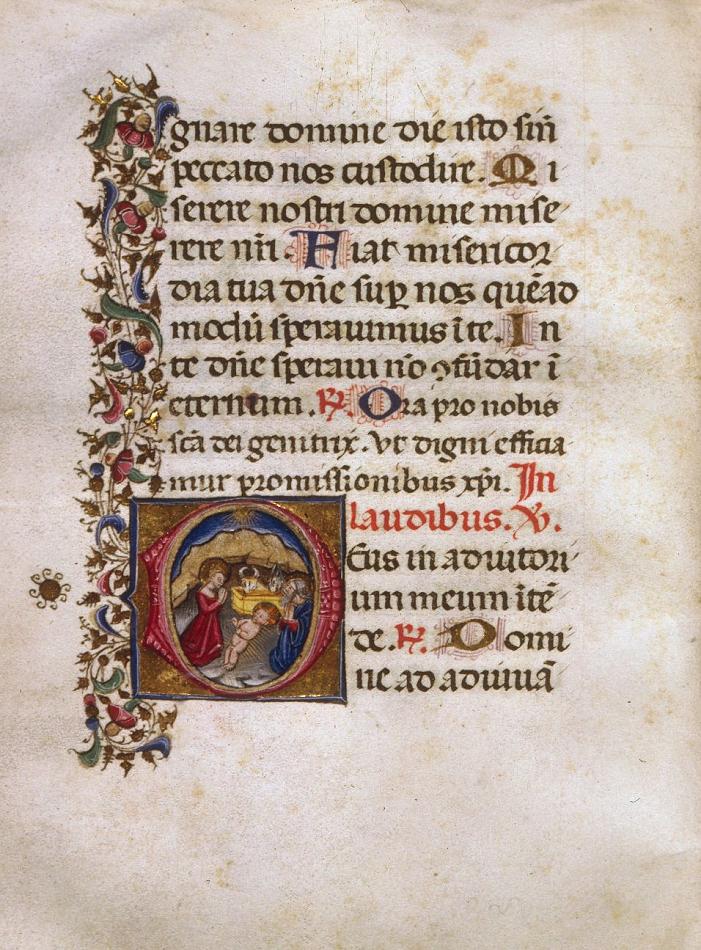 gnare domine die isto siñ
peccato nos custodire. Mi
serere nostri domine mise
rere nr̄i. Fiat misericor
dia tua dn̄e sup̱ nos quēad
modū sperauimus ī te. In
te dn̄e speraui nō ꝯfūdar ī
eternum. ℞. Ora pro nobis
sc̄a dei genitrix. Vt digni efficia
mur promissionibus xp̄i. In
laudibus. ℣.
Deus in adiutori
um meum ītē
de. ℞. Domi
ne ad adiuuā